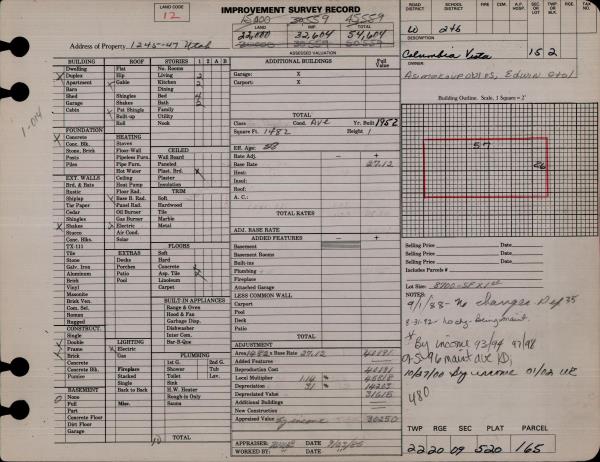 LAND CODE
12
IMPROVEMENT SURVEY RECORD
15,000 30,559 45,559
22,000 32,604 54,604
ASSESSED VALUATION
Address of Property 1245-47 Utah
ROAD DISTRICT SCHOOL DISTRICT FIRE CEM. A.P. HOSP. SEC. OR LOT TAX NO.
W 2+6
Columbia Vista 15 2
OWNER
Edwin etal
BUILDING ROOF STORIES 1 2
Dwelling Flat No. of Rooms
Duplex Hip Living 2
Apartment Gable Kitchen 2
Barn Dining
Shed Shingles Bed 4
Garage Shakes Bath 2
Cabin Pat Shingle Family
Built-up Utility
Roll Nook
1-04
FOUNDATION HEATING
Concrete Stoves
Conc. Blk. Floor-Wall CEILED
Stone, Brick Pipeless Furn. Wall Board
Posts Pipe Furn. Paneled
Piles Hot Water Plast. Brd.
Ceiling Plaster
EXT. WALLS Heat Pump Insulation
Brd. & Bats Floor Rad. TRIM
Rustic Base B. Rad. Soft
Shiplap Panel Rad. Hardwood
Tar Paper Oil Burner Tile
Cedar Gas Burner Marble
Shingles Electric Metal
Shakes Air Cond.
Stucco Solar FLOORS
Conc. Blks. Soft
TX-111 EXTRAS Hard
Tile Decks Concrete
Stone Porches Asp. Tile
Galv. Iron Patio Linoleum
Aluminum Pool Carpet
Brick Bar-B-Cue
Vinyl
Masonite BUILT-IN APPLIANCES
Brick Ven. Range & Oven
Com. Sel. Hood & Fan
Roman Garbage Disp.
Rugged Dishwasher
CONSTRUCT. Inter Com.
Single LIGHTING Bar-B-Q
Double Electric
Frame Gas PLUMBING
Brick 1st G. 2nd G.
Concrete Fireplace Shower Tub
Concrete Blk. Stacked Toilet Lav.
Pumice Single Sink
BASEMENT Back to Back H.W. Heater
None Rough-in Only
Full Misc. Sauna
Part
Concrete Floor
Dirt Floor
Garage
TOTAL
ADDITIONAL BUILDINGS Full Value
Garage: X
Carport: X
TOTAL
Class Cond. Ave Yr. Built 1952
Square Ft. 1482 Height 1
Eff. Age:
Rate Adj. - +
Base Rate 27.12
Heat:
Insul:
Roof:
A. C.:
TOTAL RATES
ADJ. BASE RATE
ADDED FEATURES - +
Basement
Basement Rooms
Built-ins
Plumbing
Fireplace
Attached Garage
LESS COMMON WALL
Carport
Pool
Deck
Patio
TOTAL
ADJUSTMENT
Area 1482 x Base Rate 27.12 40191
Added Features
Reproduction Cost 40191
Local Multiplier 1.14 % 45818
Depreciation 31 % 14203
Depreciated Value 31615
Additional Buildings
New Construction
Appraised Value by income 30250
APPRAISER: DATE
WORKED BY: DATE
Building Outline. Scale, 1 Square = 2'
57
26
Selling Price Date
Selling Price Date
Selling Price Date
Includes Parcels #
Lot Size: 8700 SF
NOTES:
9/1/83 - No changes - Dep 35
8-31-92
By income 93/94 97/98
10/27/00 By income 01/02
480
TWP RGE SEC PLAT PARCEL
22 20 09 520 165